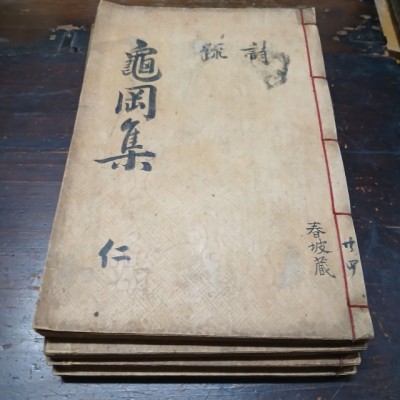 龜岡集
仁
詩
疏
春坡藏